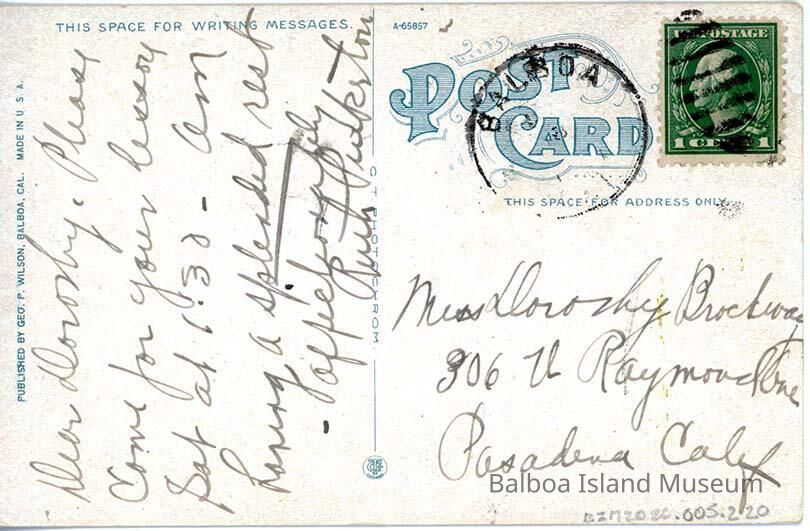 THIS SPACE FOR WRITING MESSAGES.
A-65857
Dear Dorothy. Please
Come for your lesson
Sat at 1:30 - Am
having a splendid rest
- affectionately
Ruth
PUBLISHED BY GEO. P. WILSON, BALBOA, CAL. MADE IN U S A.
C T PHOTOCHROM
POST CARD
BALBOA
U.S. POSTAGE
1 CENT 1
THIS SPACE FOR ADDRESS ONLY.
Miss Dorothy Brockway
306 N Raymond Ave
Pasadena Calif
Balboa Island Museum